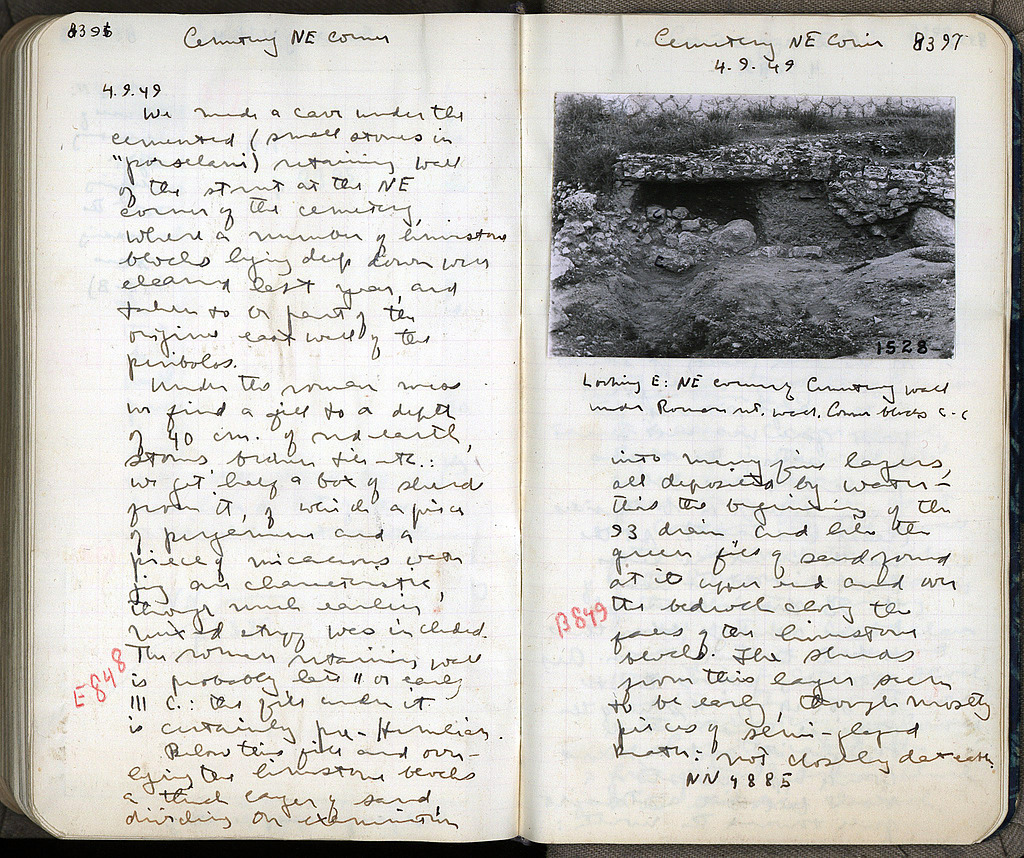 8396
Cemetery NE Corner
4.9.49
We made a cave under the
cemented (small stones in
"porselani) retaining wall
of the street at the NE
corner of the cemetery,
where a number of limestone
blocks lying deep down were
cleaned last year, and
taken to be part of the
original east wall of the
peribolos.
Under the roman
we find a fill to a depth
of 40 cm. of red earth,
stones, broken tiles etc.:
we get half a box of sherds
from it, of which a piece
of pergamene and a
piece of micaceous water
jug are characteristic,
though much earlier,
mixed stuff was included.
The roman retaining wall
is probably late II or early
III C.: the fill under it
is certainly pre-Herulian.
Below this fill and over-
lying the limestone blocks
a thick layer of sand,
dividing on examination
E848
Cemetery NE Corner 8397
4.9.49
1528
Looking E: NE corner of Cemetery wall
under Roman ret. wall. Corner blocks c-c
into many fine layers,
all deposited by water -
this the beginning of the
93 drain, and like the
green fill of sand found
at its upper end and over
the bedrock along the
faces of the limestone
blocks. The sherds
from this layer seem
to be early, though mostly
pieces of semi-glazed
krater: not closely dateable.
B849
NN 4885